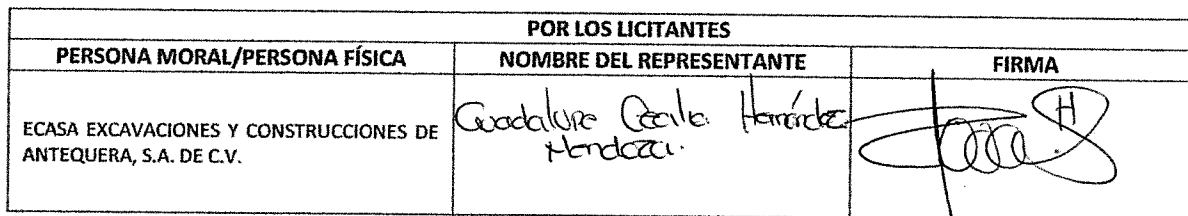 POR LOS LICITANTES
PERSONA MORAL/PERSONA FÍSICA NOMBRE DEL REPRESENTANTE FIRMA
ECASA EXCAVACIONES Y CONSTRUCCIONES DE
ANTEQUERA, S.A. DE C.V.
Guadalupe Cecilia Hernández
Mendoza.